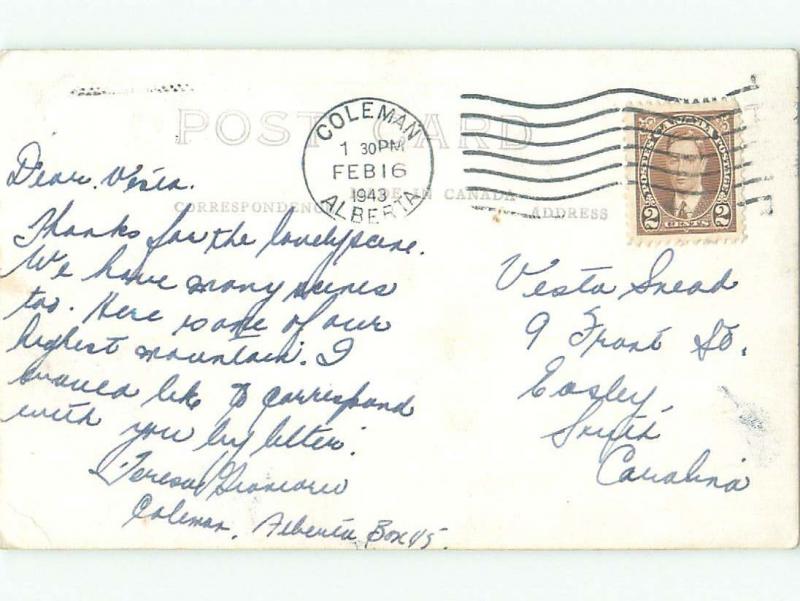 POST CARD
COLEMAN
1 30PM
FEB 16
1943
ALBERTA
MADE IN CANADA
CORRESPONDENCE
ADDRESS
POSTES CANADA POSTAGE
2 CENTS 2
Dear Vesta.
Thanks for the lovely scene.
We have many scenes
too. Here is one of our
highest mountain. I
would like to correspond
with you by letter.
Teresa
Coleman, Alberta Box 45.
Vesta Snead
9 Front St.
Easley,
South
Carolina